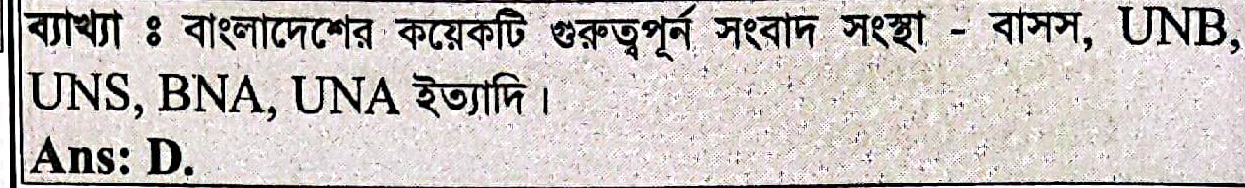 ব্যাখ্যা ঃ বাংলাদেশের কয়েকটি গুরুত্বপূর্ন সংবাদ সংস্থা - বাসস, UNB,
UNS, BNA, UNA ইত্যাদি।
Ans: D.